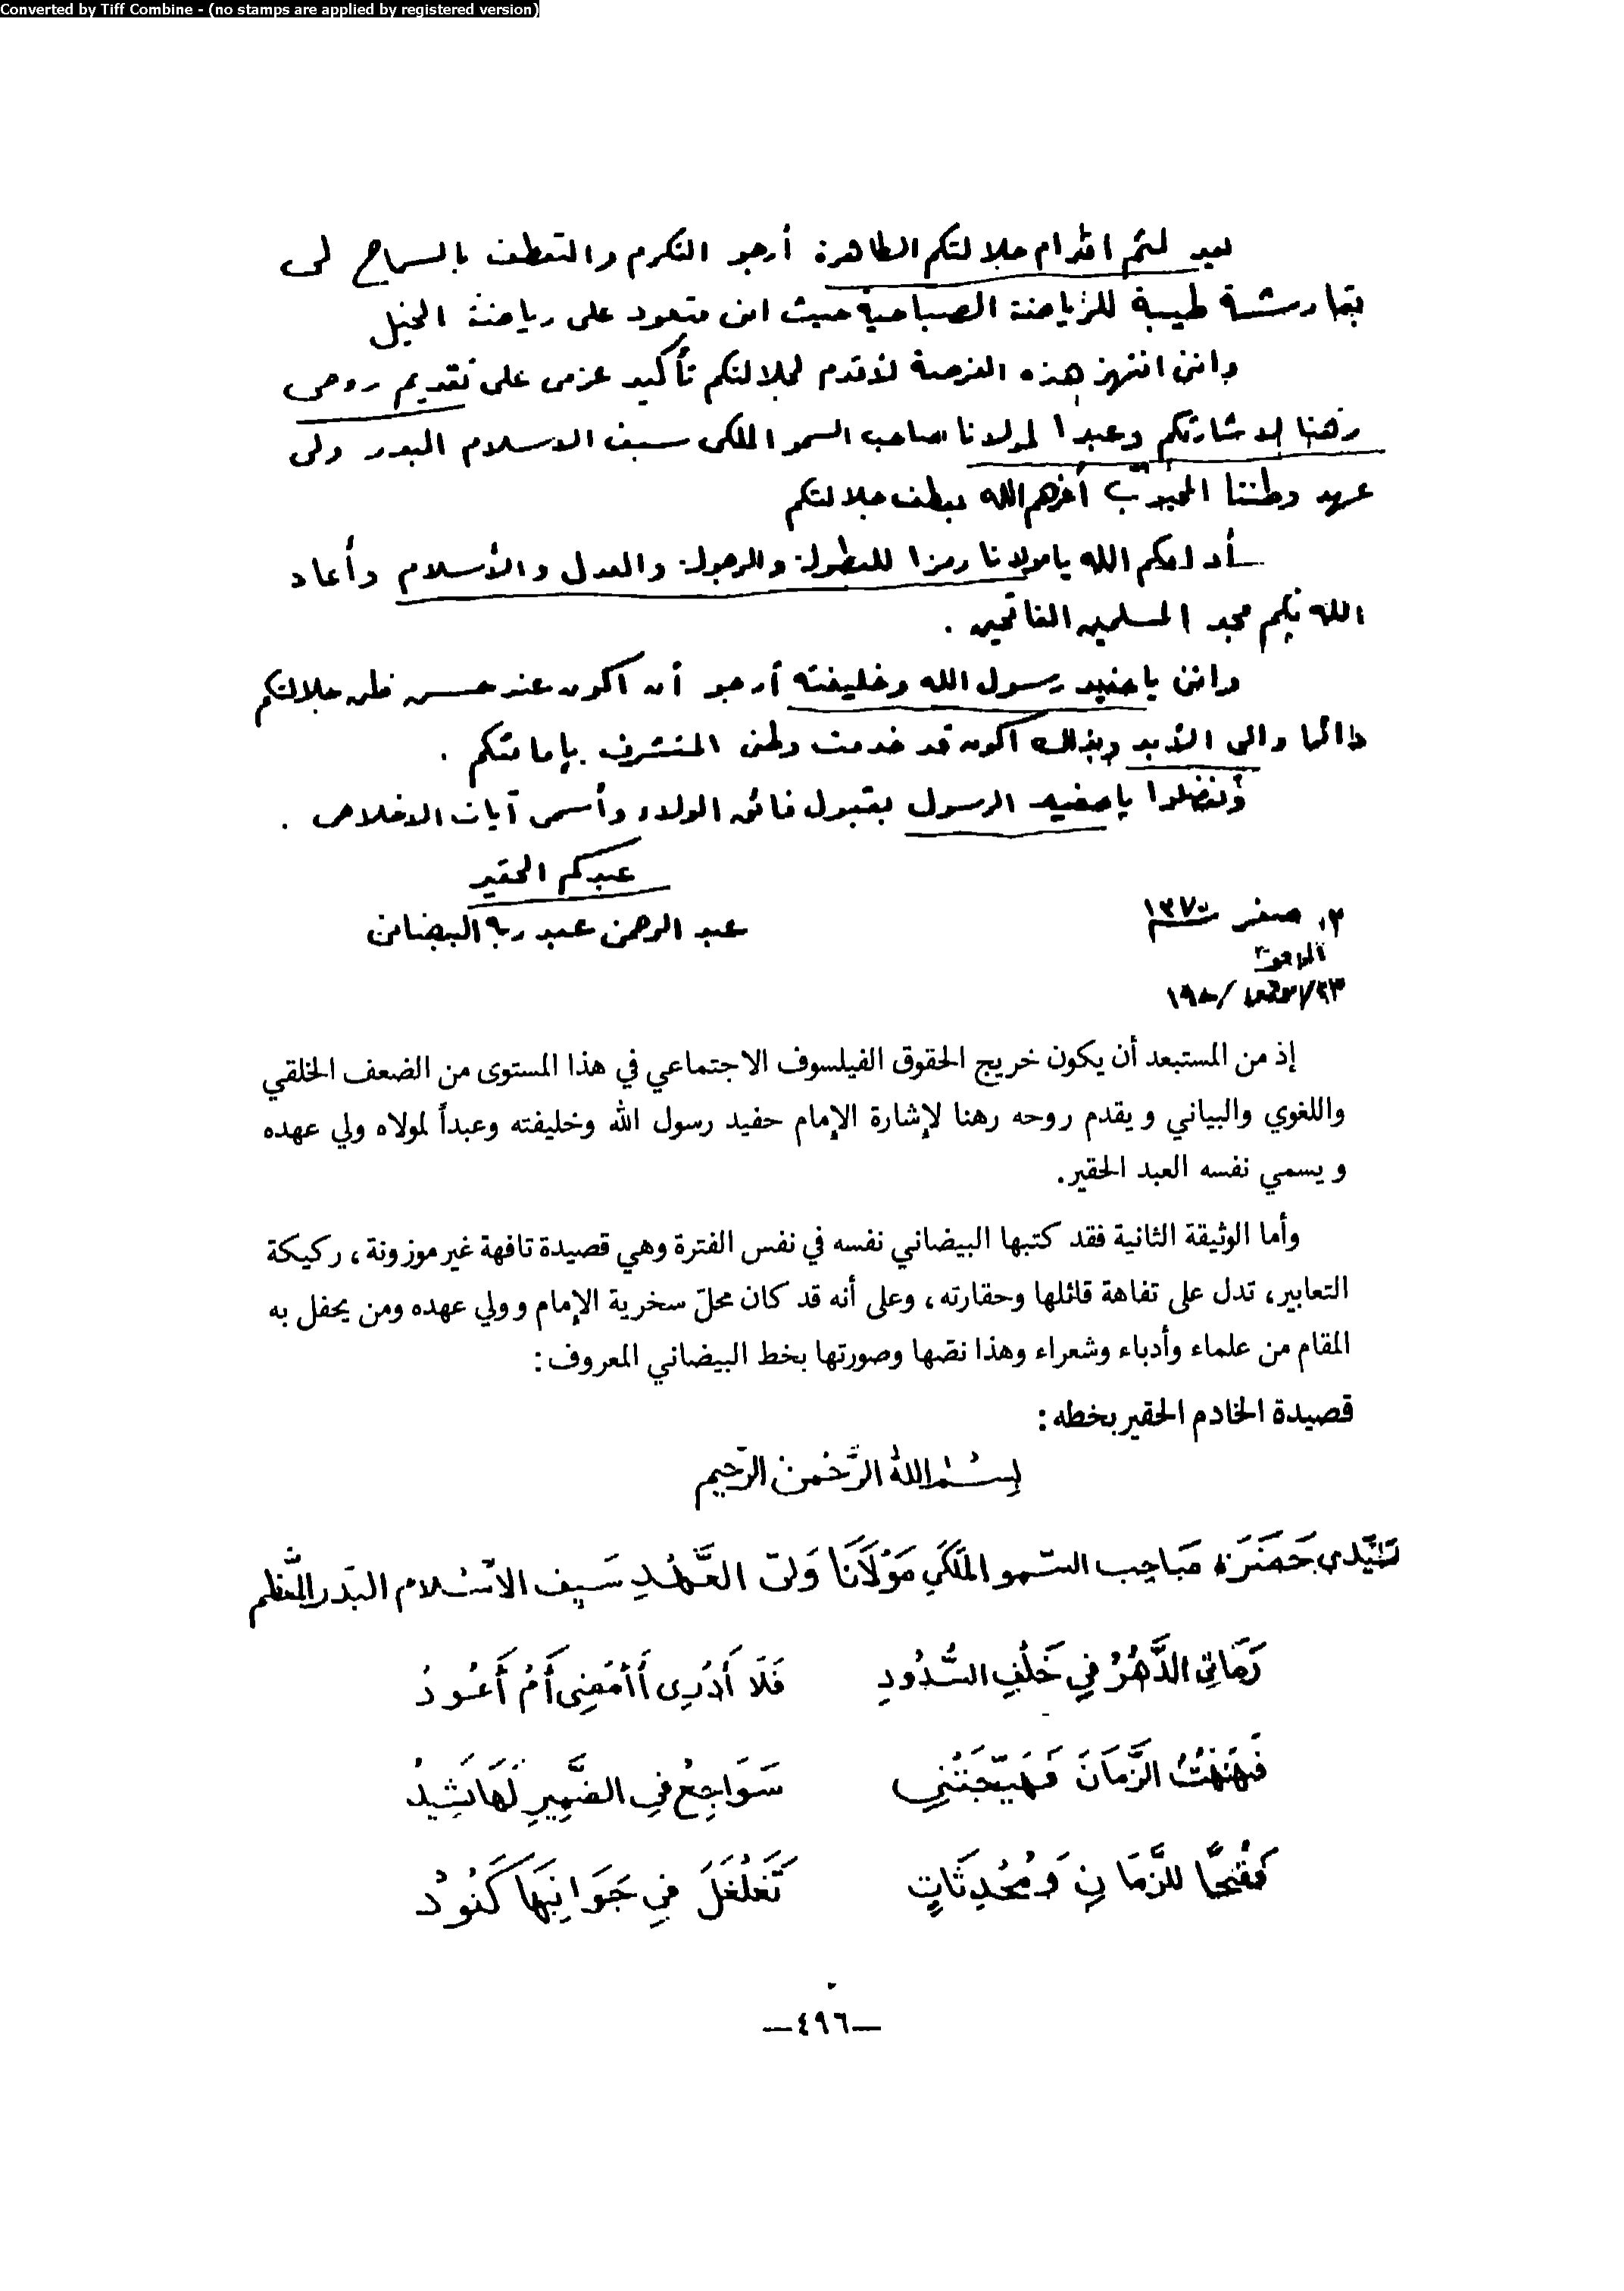 Converted by Tiff Combine - (no stamps are applied by registered version)
بعد لثم اقدام جلالتكم الطاهرة أرجو التكرم والتعطف بالسماح لى
طيبة للرياضة الصباحية حيث انى متعود على رياضة الخيل
وانى انتهز هذه الفرصة لأقدم لجلالتكم تأكيد عزمى على تقديم روحى
رهنا لإشارتكم وعبدا لمولانا صاحب السمو الملكى سيف الاسلام البدر ولى
عهد وطننا المحبوب أعزهم الله بعطف جلالتكم
أدامكم الله يا مولانا رمزا للبطولة والرجولة والعدل والأسلام وأعاد
الله بكم مجد المسلمين الفاتحين .
وانى يا حفيد رسول الله وخليفته أرجو أن اكون عند حسن ظن جلالتكم
دائما والى الأبد وبذلك اكون قد خدمت وطنى المتشرف بإمامتكم .
وتفضلوا يا حفيد الرسول بقبول فائق الولاء وأسمى آيات الاخلاص .
عبدكم الحقير
عبد الرحمن عبد ربه البيضانى
صفر ١٣٧٠
الموافق
إذ من المستبعد أن يكون خريج الحقوق الفيلسوف الاجتماعي في هذا المستوى من الضعف الخلقي
واللغوي والبياني ويقدم روحه رهنا لإشارة الإمام حفيد رسول الله وخليفته وعبداً لمولاه ولي عهده
ويسمي نفسه العبد الحقير.
وأما الوثيقة الثانية فقد كتبها البيضاني نفسه في نفس الفترة وهي قصيدة تافهة غير موزونة، ركيكة
التعابير، تدل على تفاهة قائلها وحقارته، وعلى أنه قد كان محلّ سخرية الإمام وولي عهده ومن يحفل به
المقام من علماء وأدباء وشعراء وهذا نصّها وصورتها بخط البيضاني المعروف:
قصيدة الخادم الحقير بخطه:
بِسْمِ اللهِ الرَّحْمنِ الرَّحِيمِ
سَيِّدى حَضْرَة صَاحِب السّمو المَلَكي مَوْلَانَا وَلىّ العَهْدِ سَيف الاسْلام البَدر المعَظم
رَمَانِى الدَّهْرُ فِي خَلْفِ السُّدُودِ فَلَا أَدْرِى أَأَمْضِى أَمْ أَعُودُ
الزَّمَانَ فَهَيّجَتْنِي سَوَاجِعُ فِي الضَّمِيرِ لَهَا نَشِيدُ
فَقُبْحًا للزَّمَانِ وَمُحْدِثَاتٍ تَغَلْغَلَ فِي جَوَانِبِهَا كَنُودُ
—٤٩٦—